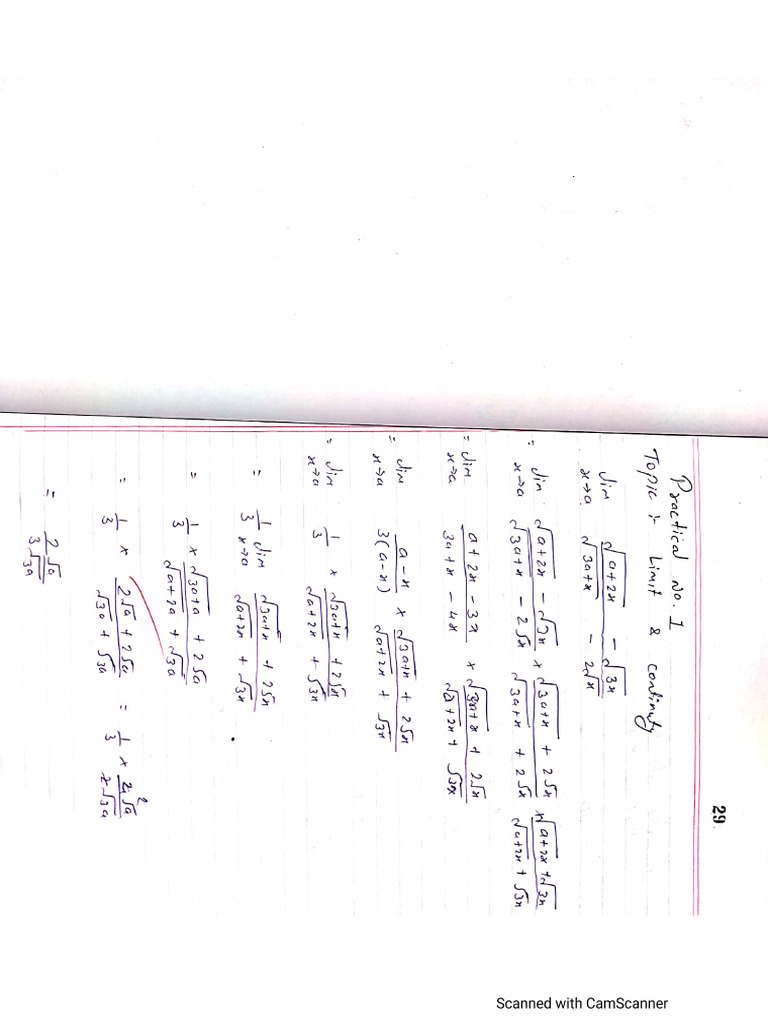 29
Practical No. 1
Topic :- Limit & continuity
lim x→a (√(a+2x) − √(3x)) / (√(3a+x) − 2√x)
= lim x→a (√(a+2x) − √(3x)) / (√(3a+x) − 2√x) × (√(3a+x) + 2√x) / (√(3a+x) + 2√x) × (√(a+2x) + √(3x)) / (√(a+2x) + √(3x))
= lim x→a (a+2x − 3x) / (3a+x − 4x) × (√(3a+x) + 2√x) / (√(a+2x) + √(3x))
= lim x→a (a−x) / 3(a−x) × (√(3a+x) + 2√x) / (√(a+2x) + √(3x))
= lim x→a 1/3 × (√(3a+x) + 2√x) / (√(a+2x) + √(3x))
= 1/3 lim x→a (√(3a+x) + 2√x) / (√(a+2x) + √(3x))
= 1/3 × (√(3a+a) + 2√a) / (√(a+2a) + √(3a))
= 1/3 × (2√a + 2√a) / (√(3a) + √(3a)) = 1/3 × 4√a / 2√(3a)
= 2√a / 3√(3a)
Scanned with CamScanner